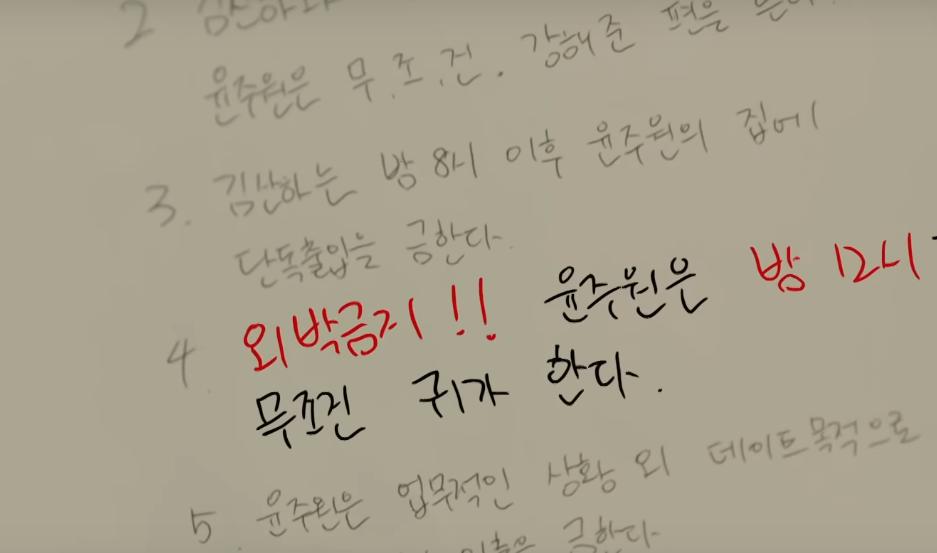 2 김산하와
윤주원은 무.조.건. 강해준 편을 든다.
3. 김산하는 밤 8시 이후 윤주원의 집에
단독출입을 금한다.
4. 외박금지!! 윤주원은 밤 12시
무조건 귀가 한다.
5 윤주원은 업무적인 상황 외 데이트목적으로
금한다.